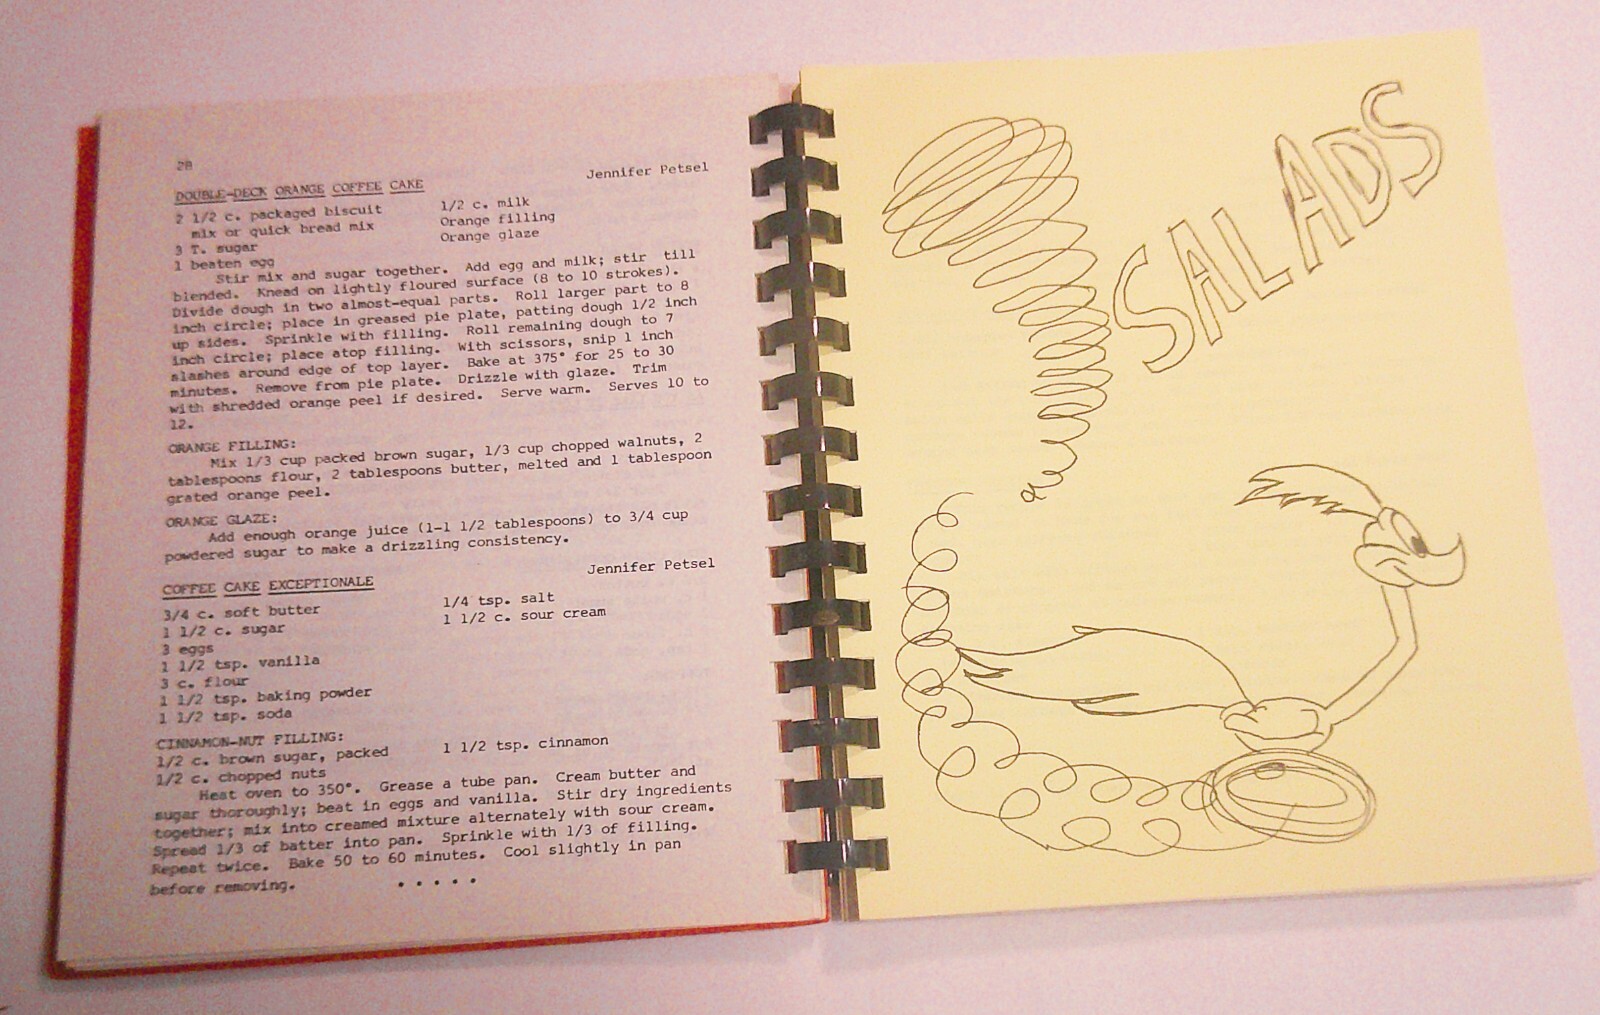 28
Jennifer Petsel
DOUBLE-DECK ORANGE COFFEE CAKE
2 1/2 c. packaged biscuit
mix or quick bread mix
3 T. sugar
1 beaten egg
1/2 c. milk
Orange filling
Orange glaze
Stir mix and sugar together. Add egg and milk; stir till
blended. Knead on lightly floured surface (8 to 10 strokes).
Divide dough in two almost-equal parts. Roll larger part to 8
inch circle; place in greased pie plate, patting dough 1/2 inch
up sides. Sprinkle with filling. Roll remaining dough to 7
inch circle; place atop filling. With scissors, snip 1 inch
slashes around edge of top layer. Bake at 375° for 25 to 30
minutes. Remove from pie plate. Drizzle with glaze. Trim
with shredded orange peel if desired. Serve warm. Serves 10 to
12.
ORANGE FILLING:
Mix 1/3 cup packed brown sugar, 1/3 cup chopped walnuts, 2
tablespoons flour, 2 tablespoons butter, melted and 1 tablespoon
grated orange peel.
ORANGE GLAZE:
Add enough orange juice (1-1 1/2 tablespoons) to 3/4 cup
powdered sugar to make a drizzling consistency.
Jennifer Petsel
COFFEE CAKE EXCEPTIONALE
3/4 c. soft butter
1 1/2 c. sugar
3 eggs
1 1/2 tsp. vanilla
3 c. flour
1 1/2 tsp. baking powder
1 1/2 tsp. soda
1/4 tsp. salt
1 1/2 c. sour cream
CINNAMON-NUT FILLING:
1/2 c. brown sugar, packed
1/2 c. chopped nuts
1 1/2 tsp. cinnamon
Heat oven to 350°. Grease a tube pan. Cream butter and
sugar thoroughly; beat in eggs and vanilla. Stir dry ingredients
together; mix into creamed mixture alternately with sour cream.
Spread 1/3 of batter into pan. Sprinkle with 1/3 of filling.
Repeat twice. Bake 50 to 60 minutes. Cool slightly in pan
before removing.
. . . . .
SALADS